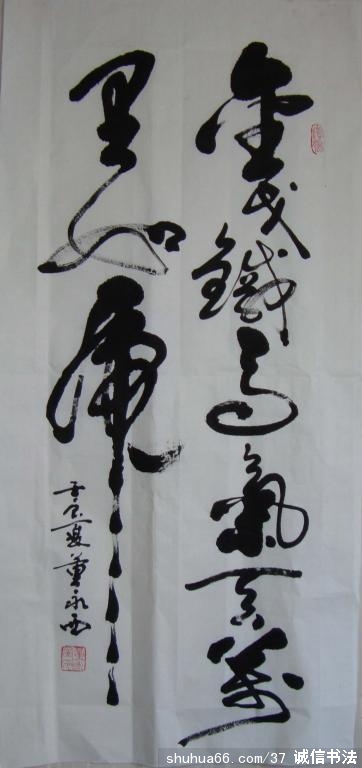 金戈鐵馬氣吞萬
里如虎
夏董永西
shuhua66.com/37 诚信书法